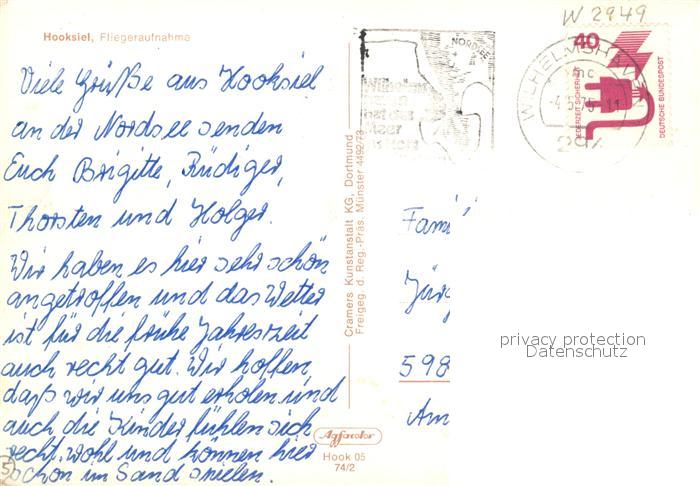 W 2949
Hooksiel, Fliegeraufnahme
Viele Grüße aus Hooksiel
an der Nordsee senden
Euch Brigitte, Rüdiger,
Thorsten und Holger.
Wir haben es hier sehr schön
angetroffen und das Wetter
ist für die frühe Jahreszeit
auch recht gut. Wir hoffen,
daß wir uns gut erholen und
auch die Kinder fühlen sich
recht wohl und können hier
schon im Sand spielen.
5
Agfacolor
Hook 05
74/2
Cramers Kunstanstalt KG, Dortmund
Freigeg. d. Reg.-Präs. Münster 4492/73
NORDSEE
Wilhelmshaven
hat das
Meer
WILHELMSHAVEN
-4.5.75-11
294
40
JEDERZEIT SICHERHEIT
DEUTSCHE BUNDESPOST
Fami
Jürg
598
Am
privacy protection
Datenschutz